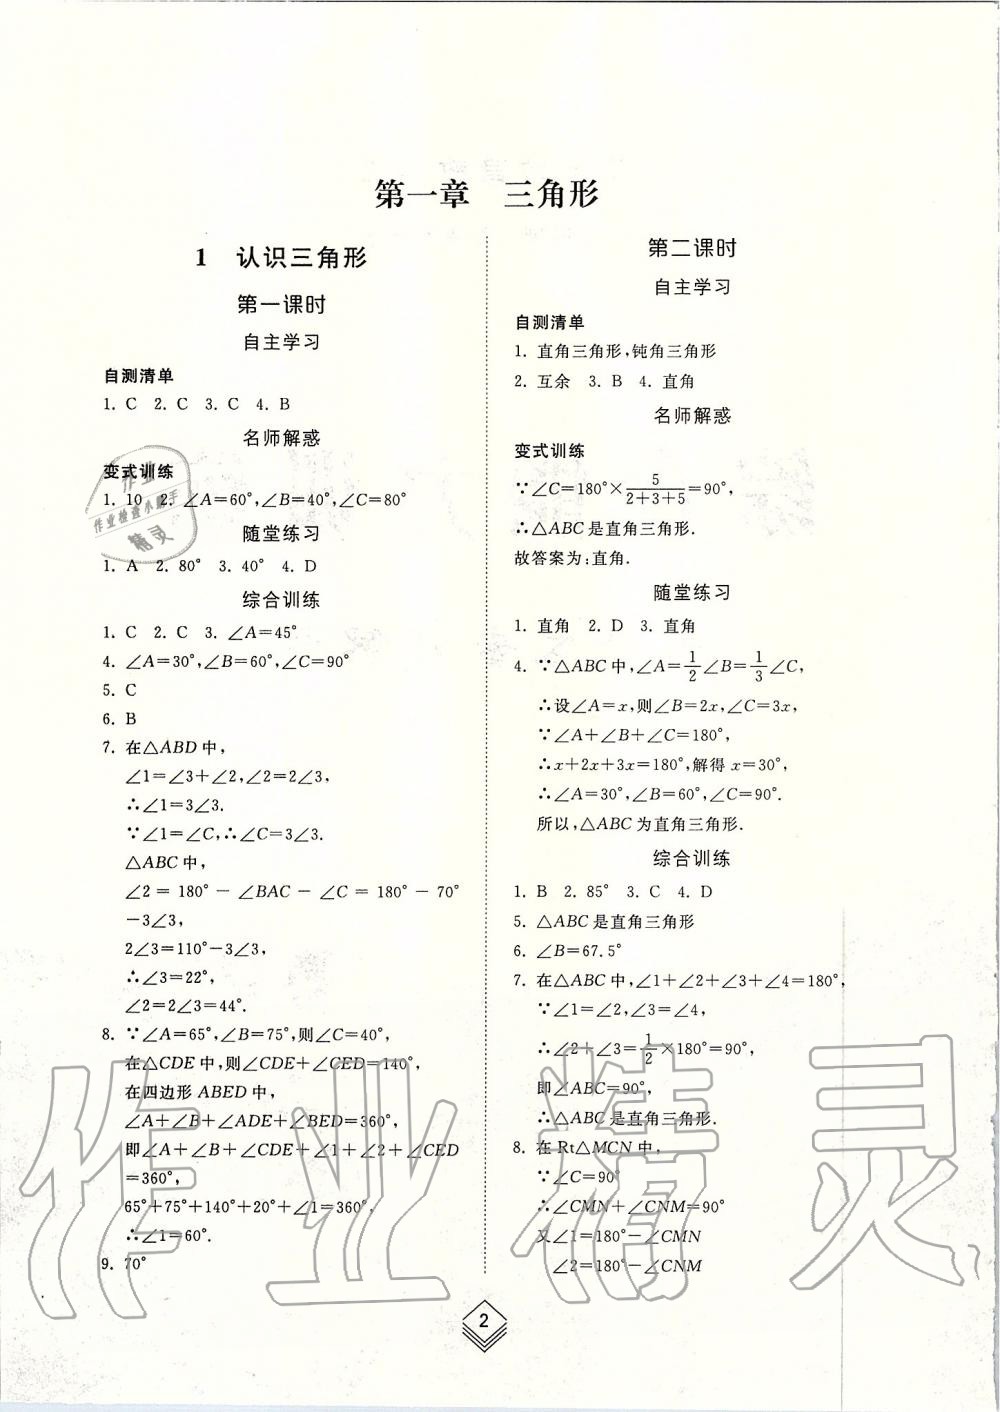 第一章 三角形
1 认识三角形
第一课时
自主学习
自测清单
1. C 2. C 3. C 4. B
名师解惑
变式训练
1. 10 2. ∠A=60°,∠B=40°,∠C=80°
随堂练习
1. A 2. 80° 3. 40° 4. D
综合训练
1. C 2. C 3. ∠A=45°
4. ∠A=30°,∠B=60°,∠C=90°
5. C
6. B
7. 在△ABD中,
∠1=∠3+∠2,∠2=2∠3,
∴∠1=3∠3.
∵∠1=∠C,∴∠C=3∠3.
△ABC中,
∠2=180°-∠BAC-∠C=180°-70°
-3∠3,
2∠3=110°-3∠3,
∴∠3=22°,
∠2=2∠3=44°.
8. ∵∠A=65°,∠B=75°,则∠C=40°,
在△CDE中,则∠CDE+∠CED=140°,
在四边形ABED中,
∠A+∠B+∠ADE+∠BED=360°,
即∠A+∠B+∠CDE+∠1+∠2+∠CED
=360°,
65°+75°+140°+20°+∠1=360°,
∴∠1=60°.
9. 70°
第二课时
自主学习
自测清单
1. 直角三角形,钝角三角形
2. 互余 3. B 4. 直角
名师解惑
变式训练
∵∠C=180°×5/(2+3+5)=90°,
∴△ABC是直角三角形.
故答案为:直角.
随堂练习
1. 直角 2. D 3. 直角
4. ∵△ABC中,∠A=1/2∠B=1/3∠C,
∴设∠A=x,则∠B=2x,∠C=3x,
∵∠A+∠B+∠C=180°,
∴x+2x+3x=180°,解得x=30°,
∴∠A=30°,∠B=60°,∠C=90°.
所以,△ABC为直角三角形.
综合训练
1. B 2. 85° 3. C 4. D
5. △ABC是直角三角形
6. ∠B=67.5°
7. 在△ABC中,∠1+∠2+∠3+∠4=180°,
∵∠1=∠2,∠3=∠4,
∴∠2+∠3=1/2×180°=90°,
即∠ABC=90°,
∴△ABC是直角三角形.
8. 在Rt△MCN中,
∵∠C=90°
∴∠CMN+∠CNM=90°
又∠1=180°-∠CMN
∠2=180°-∠CNM
2
作业
作业检查小助手
精灵
作业精灵